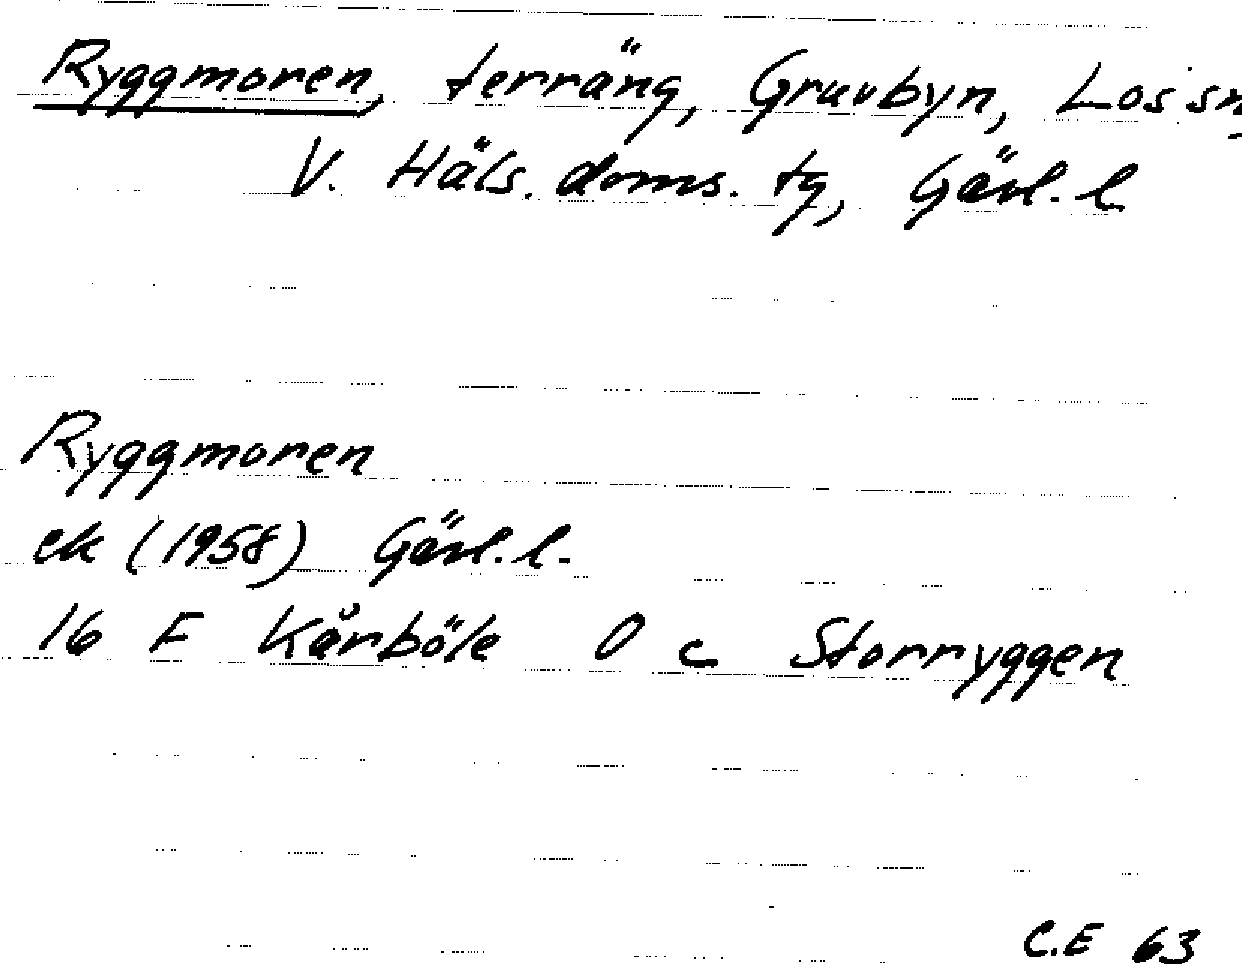 Ryggmoren, terräng, Gruvbyn, Los sn,
V. Häls. doms. tg, Gävl. l
Ryggmoren
ek (1958) Gävl. l.
16 F Kårböle O c Storryggen
C.E 63